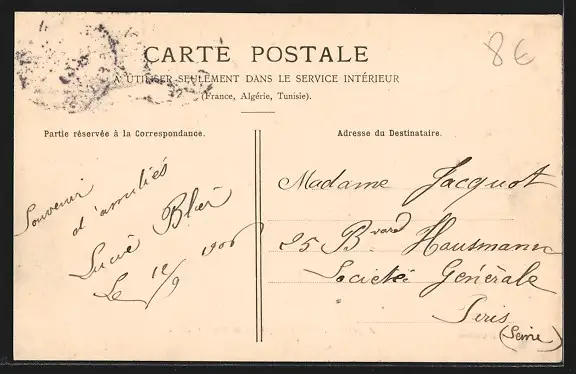 CARTE POSTALE
A UTILISER SEULEMENT DANS LE SERVICE INTÉRIEUR
(France, Algérie, Tunisie).
8€
Partie réservée à la Correspondance.
Souvenir
d'amitiés
Lucie
Le 12/9 1906
Adresse du Destinataire.
Madame Jacquot
25 Bvard Hausmann
Societé Genérale
Peris
(Seine)